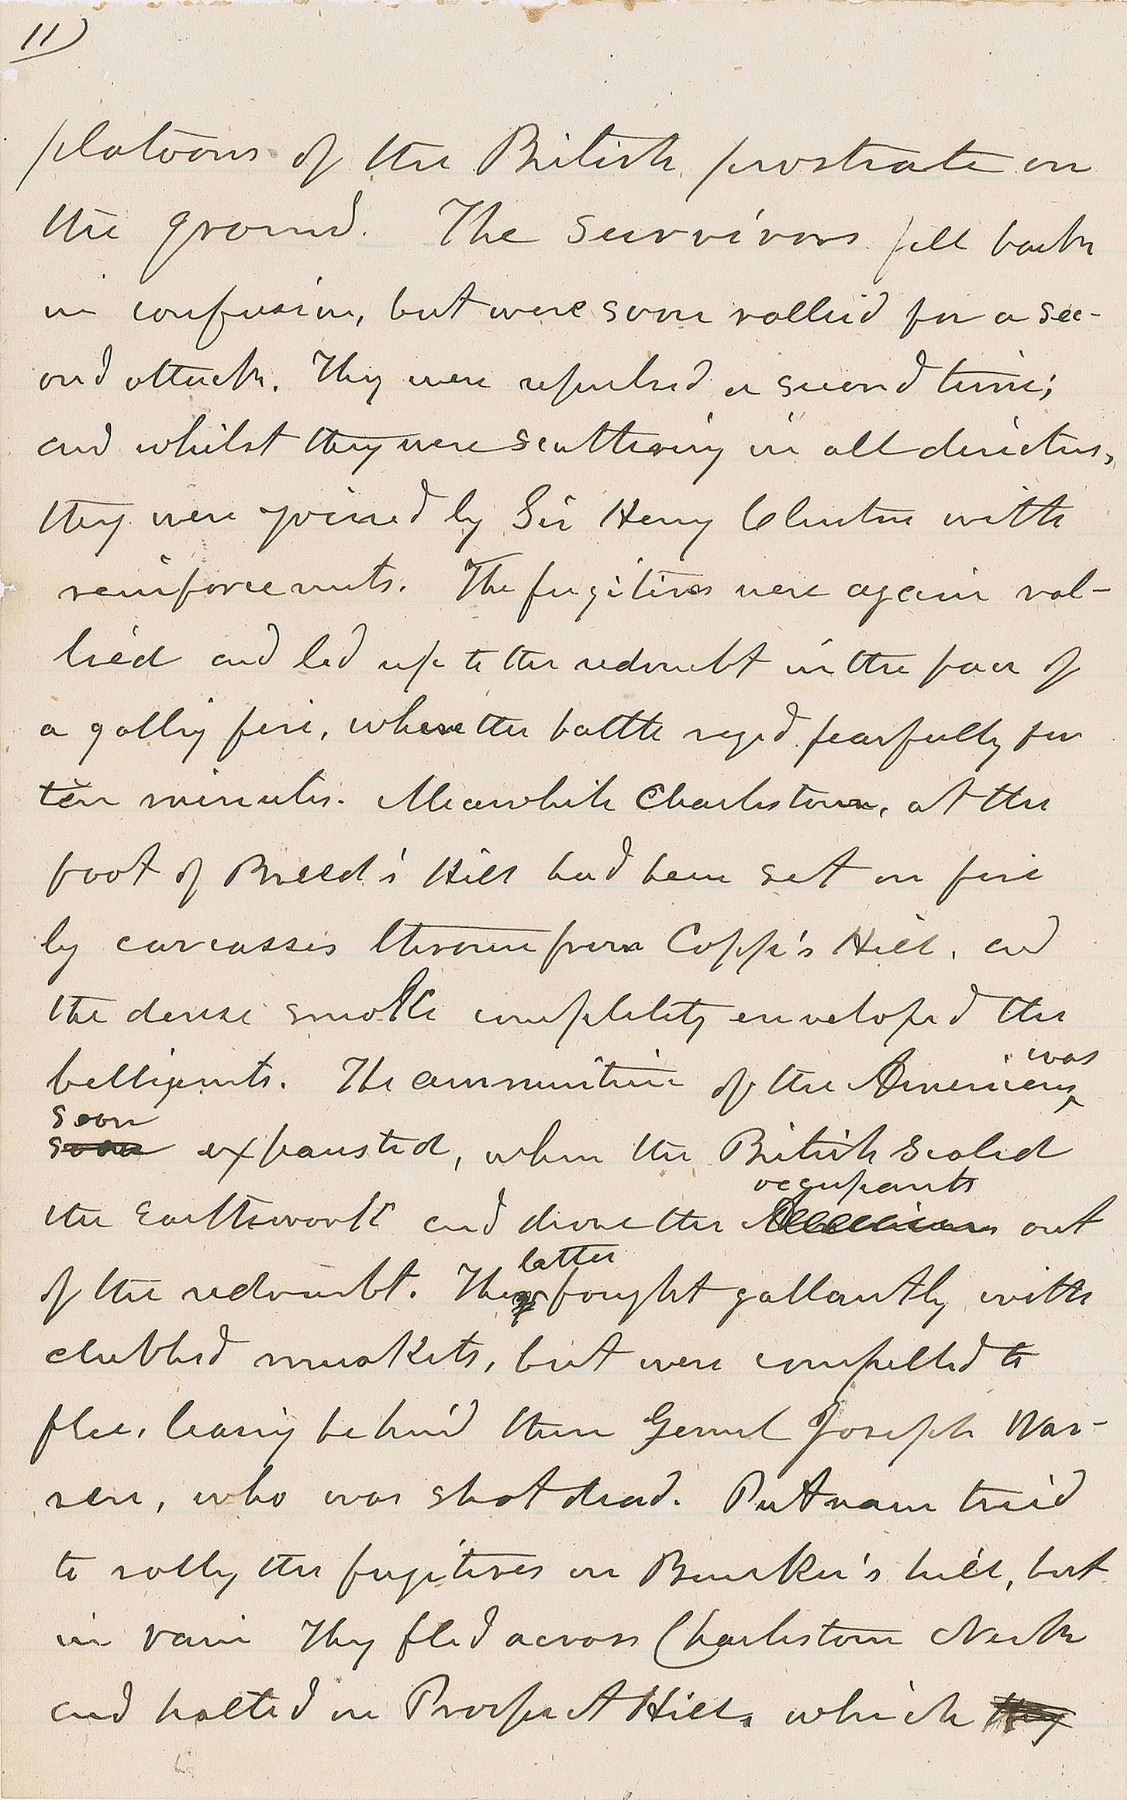 11)
platoons of the British prostrate on
the ground. The survivors fell back
in confusion, but were soon rallied for a sec-
ond attack. They were repulsed a second time;
and whilst they were scattering in all directions,
they were joined by Sir Henry Clinton with
reinforcements. The fugitives were again ral-
lied and led up to the redoubt in the face of
a galling fire, where the battle raged fearfully for
ten minutes. Meanwhile Charlestown, at the
foot of Breed's Hill had been set on fire
by carcasses thrown from Copp's Hill, and
the dense smoke completely enveloped the
belligerents. The ammunition of the Americans was
soon
soon exhausted, when the British scaled
occupants
the earthwork and drove the out
latter
of the redoubt. The fought gallantly with
clubbed muskets, but were compelled to
flee, leaving behind them General Joseph War-
ren, who was shot dead. Putnam tried
to rally the fugitives on Bunker's hill, but
in vain They fled across Charlestown Neck
and halted on Prospect Hill, which they